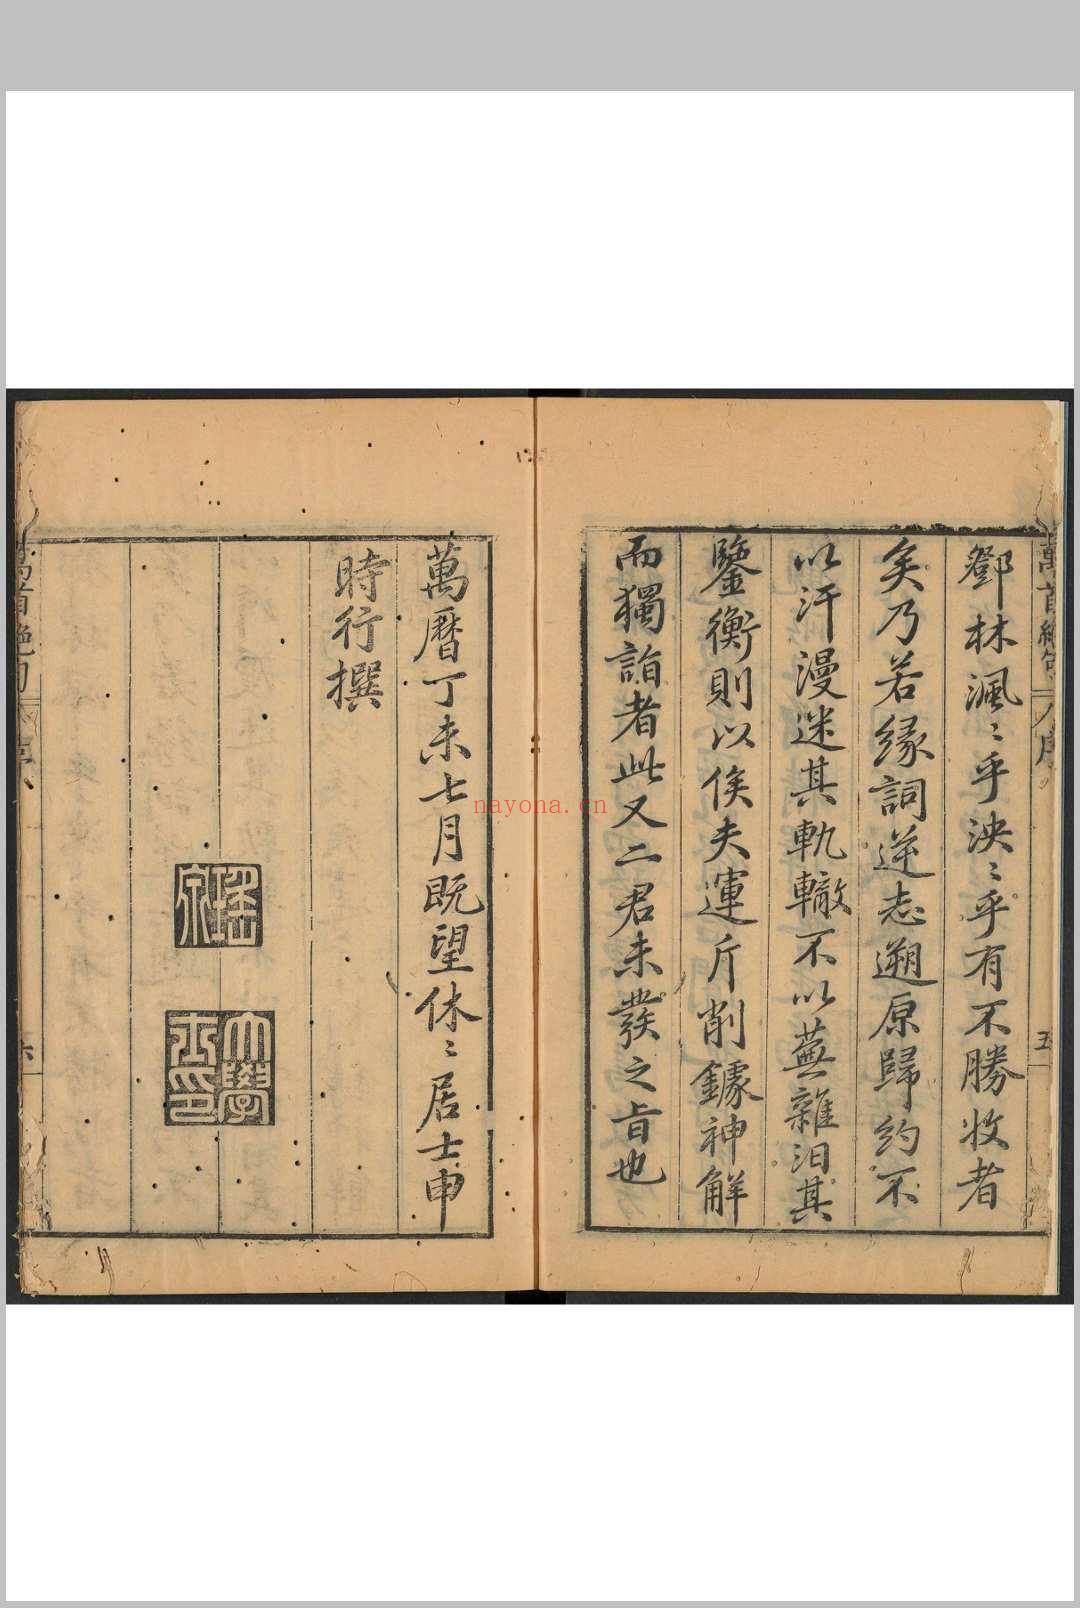 鄧林渢〻乎泱〻乎有不勝收者
矣乃若緣詞逆志遡原歸約不
以汗漫迷其軌轍不以蕪雜汨其
鑒衡則以俟夫運斤削鐻神解
而獨詣者此又二君未發之旨也
萬曆丁未七月既望休〻居士申
時行撰
瑤泉
大學士印
萬首絕句
序
五
萬首絕句
nayona.cn